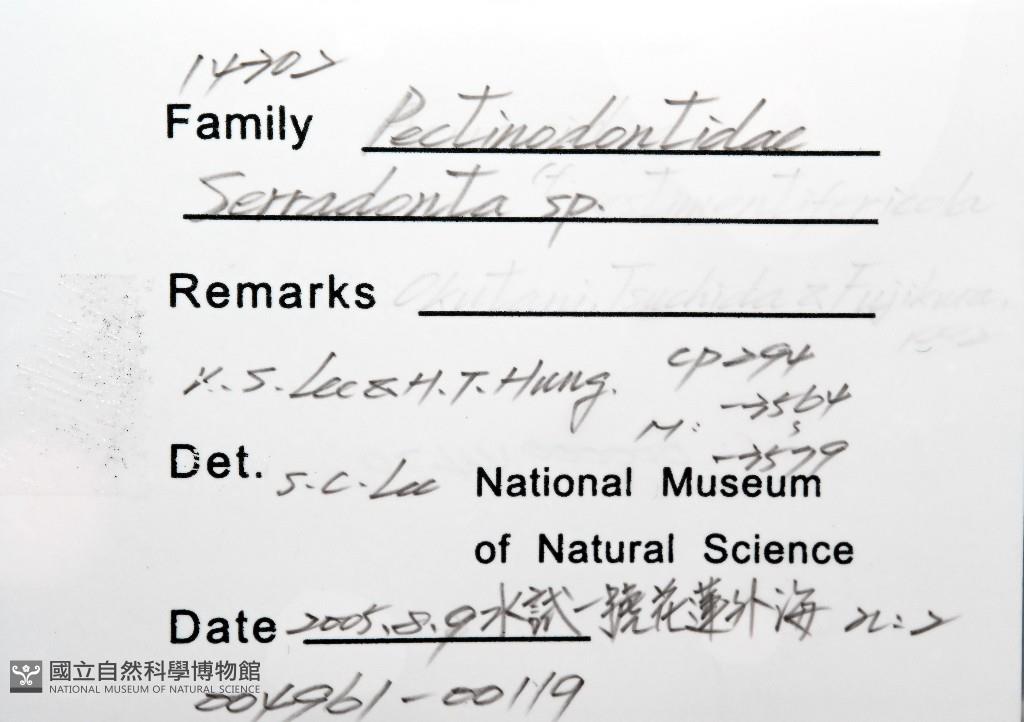 Family Pectinodontidae
Serradonta sp.
Remarks Okutani, Tsuchida & Fujikura,
K. S. Lee & H. T. Hung. CP294
M: →3564
s
→3579
Det. S. C. Lee National Museum
of Natural Science
Date 2005.8.9 水試一號花蓮外海 n:2
國立自然科學博物館
NATIONAL MUSEUM OF NATURAL SCIENCE
004961-00119